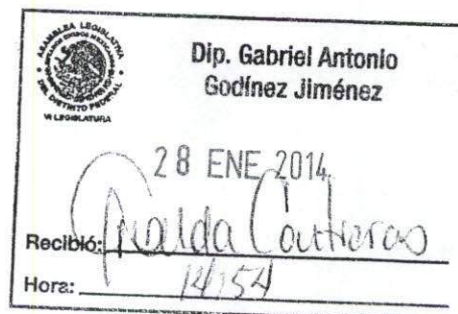 ASAMBLEA LEGISLATIVA
DEL DISTRITO FEDERAL
VI LEGISLATURA
Dip. Gabriel Antonio
Godínez Jiménez
28 ENE 2014
Recibió: Contreras
Hora: 14:54